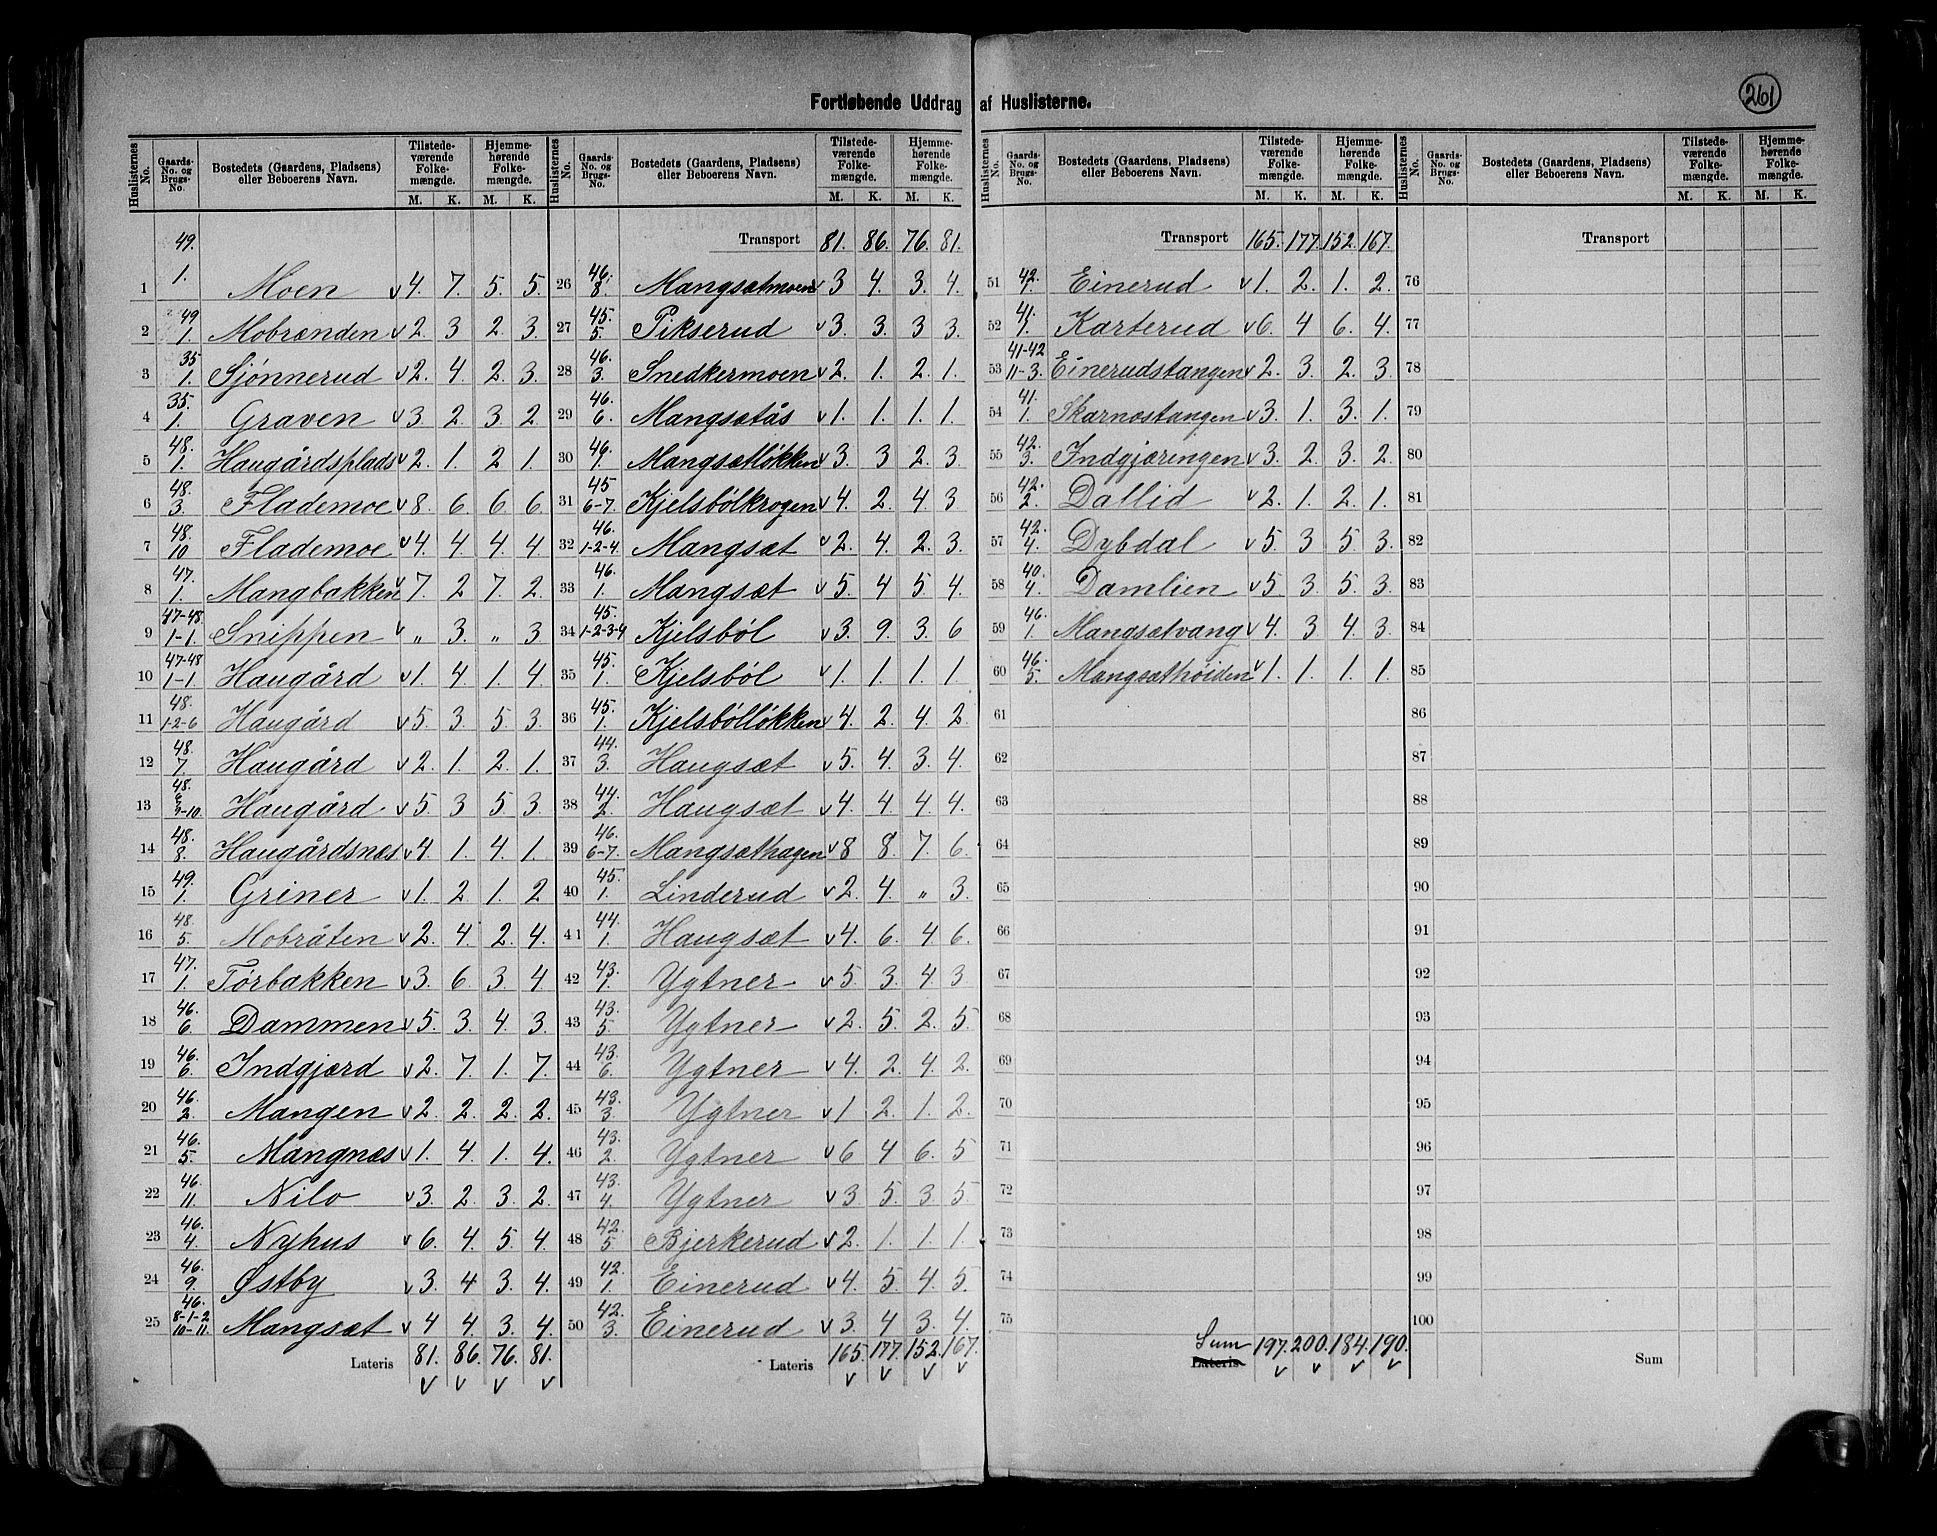 Fortløbende Uddrag af Huslisterne.
261
Huslisternes No. | Gaards-No. og Brugs-No. | Bostedets (Gaardens, Pladsens) eller Beboerens Navn. | Tilstedeværende Folkemængde. M. K. | Hjemmehørende Folkemængde. M. K.
1 | 49. 1. | Moen | v 4. | 7. | 5. | 5.
2 | 49 1. | Mobrænden | v 2. | 3 | 2. | 3.
3 | 35 1. | Sjønnerud | v 2. | 4. | 2. | 3.
4 | 35. 1. | Graven | v 3. | 2. | 3. | 2
5 | 48. 1. | Haugårdsplads | v 2. | 1. | 2 | 1.
6 | 48. 3. | Flademoe | v 8. | 6 | 6. | 6.
7 | 48. 10 | Flademoe | v 4. | 4. | 4. | 4
8 | 47. 1. | Mangbakken | v 7. | 2 | 7. | 2.
9 | 47-48. 1-1. | Snippen | v „ | 3. | „ | 3
10 | 47-48 1-1. | Haugård | v 1. | 4 | 1. | 4
11 | 48. 1-2-6 | Haugård | v 5. | 3. | 5. | 3.
12 | 48. 7. | Haugård | v 2. | 1. | 2. | 1.
13 | 48. 6 9-10. | Haugård | v 5. | 3 | 5. | 3.
14 | 48. 8. | Haugårdsnæs | v 4. | 1. | 4. | 1.
15 | 49. 1. | Griner | v 1. | 2 | 1. | 2
16 | 48. 5. | Mobråten | v 2. | 4. | 2. | 4.
17 | 47. 1. | Torbakken | v 3. | 6. | 3. | 4
18 | 46. 6. | Dammen | v 5. | 3. | 4. | 3.
19 | 46. 6. | Indgjærd | v 2. | 7. | 1. | 7.
20 | 46. 2. | Mangen | v 2. | 2. | 2. | 2.
21 | 46. 5. | Mangnæs | v 1. | 4. | 1. | 4.
22 | 46. 11. | Nilo | v 3. | 2. | 3. | 2.
23 | 46. 4. | Nyhus | v 6. | 4. | 5. | 4.
24 | 46. 9. | Østby | v 3. | 4 | 3. | 4.
25 | 46. 8-1-2 10-11. | Mangsæt | v 4 | 4. | 3. | 4.
Lateris | 81. | 86. | 76. | 81.
v v v v
Huslisternes No. | Gaards-No. og Brugs-No. | Bostedets (Gaardens, Pladsens) eller Beboerens Navn. | Tilstedeværende Folkemængde. M. K. | Hjemmehørende Folkemængde. M. K.
Transport | 81. | 86. | 76. | 81.
26 | 46. 8. | Mangsætmoen | v 3 | 4. | 3. | 4.
27 | 45. 5. | Pikserud | v 3. | 3. | 3 | 3.
28 | 46. 3. | Snedkermoen | v 2. | 1. | 2. | 1.
29 | 46. 6. | Mangsætås | v 1. | 1. | 1. | 1.
30 | 46. 1. | Mangsætløkken | v 3. | 3 | 2. | 3.
31 | 45 6-7. | Kjelsbölkrogen | v 4. | 2. | 4. | 3
32 | 46. 1-2-4 | Mangsæt | v 2. | 4. | 2. | 3.
33 | 46. 1. | Mangsæt | v 5. | 4 | 5. | 4.
34 | 45. 1-2-3-4 | Kjelsböl | v 3. | 9. | 3. | 6
35 | 45. 1. | Kjelsböl | v 1. | 1. | 1. | 1
36 | 45. 1. | Kjelsbölløkken | v 4. | 2. | 4. | 2.
37 | 44. 3. | Haugsæt | v 5. | 4. | 3. | 4.
38 | 44. 2. | Haugsæt | v 4. | 4. | 4. | 4.
39 | 46. 6-7. | Mangsæthagen | v 8 | 8. | 7. | 6.
40 | 45. 1. | Linderud | v 2. | 4. | „ | 3.
41 | 44. 1. | Haugsæt | v 4. | 6. | 4 | 6.
42 | 43. 1. | Ygtner | v 5. | 3. | 4. | 3
43 | 43. 5. | Ygtner | v 2. | 5. | 2. | 5.
44 | 43. 6. | Ygtner | v 4. | 2. | 4. | 2.
45 | 43. 3. | Ygtner | v 1 | 2. | 1. | 2.
46 | 43. 2. | Ygtner | v 6 | 4 | 6. | 5
47 | 43. 4. | Ygtner | v 3 | 5. | 3. | 5.
48 | 42. 5. | Bjerkerud | v 2. | 1. | 1. | 1.
49 | 42. 1. | Einerud | v 4. | 5. | 4. | 5.
50 | 42. 3. | Einerud | v 3. | 4 | 3. | 4.
Lateris | 165. | 177. | 152. | 167.
v v v v
Huslisternes No. | Gaards-No. og Brugs-No. | Bostedets (Gaardens, Pladsens) eller Beboerens Navn. | Tilstedeværende Folkemængde. M. K. | Hjemmehørende Folkemængde. M. K.
Transport | 165. | 177. | 152. | 167.
51 | 42. 1. | Einerud | v 1. | 2. | 1. | 2.
52 | 41. 1. | Karterud | v 6. | 4 | 6. | 4.
53 | 41-42 11-3. | Einerudstangen | v 2. | 3. | 2. | 3.
54 | 41. 1. | Skarnostangen | v 3. | 1. | 3. | 1.
55 | 42. 3. | Indgjæringen | v 3. | 2. | 3. | 2.
56 | 42. 2. | Dallid | v 2. | 1. | 2. | 1.
57 | 42. 4. | Dybdal | v 5. | 3 | 5. | 3.
58 | 40. 4. | Damlien | v 5. | 3. | 5. | 3.
59 | 46. 1. | Mangsætvang | v 4. | 3 | 4. | 3.
60 | 46. 5. | Mangsæthöiden | v 1. | 1. | 1. | 1.
61
62
63
64
65
66
67
68
69
70
71
72
73
74
75
Sum Lateris | 197. | 200. | 184. | 190.
v v v v
Huslisternes No. | Gaards-No. og Brugs-No. | Bostedets (Gaardens, Pladsens) eller Beboerens Navn. | Tilstedeværende Folkemængde. M. K. | Hjemmehørende Folkemængde. M. K.
Transport
76
77
78
79
80
81
82
83
84
85
86
87
88
89
90
91
92
93
94
95
96
97
98
99
100
Sum